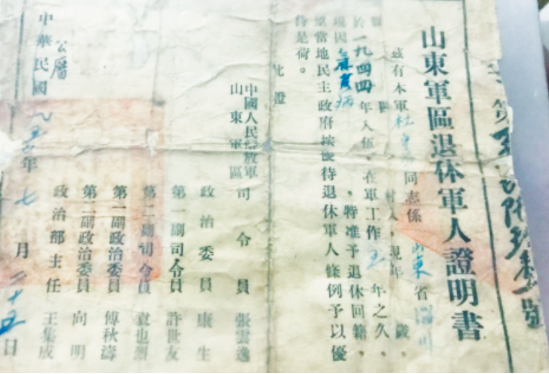 山東軍區退休軍人證明書
茲有本軍杜同志係山東省淄川
縣村人現年歲,
於一九四四年入伍,在軍工作五年之久,
現因病,特准予退休回籍,
望當地民主政府按優待退休軍人條例予以優
待是荷。
此證
中國人民解放軍
山東軍區
司令員 張雲逸
政治委員 康生
第一副司令員 許世友
第二副司令員 袁也烈
第一副政治委員 傅秋濤
第二副政治委員 向明
政治部主任 王集成
公曆
中華民國年七月二十五日